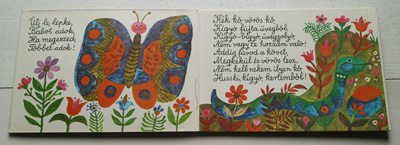 Ülj le, lepke,
Babot adok,
Ha megeszed,
Többet adok!
Kék kő, vörös kő,
Kígyó fújta üvegből,
Kígyó-bígyó üveggolyó
Nem vagy te hozzám való!
Addig fúvod a követ,
Megkékül és vörös lesz.
Nem kell nekem ilyen kő,
Husski, kígyó, kertemből!